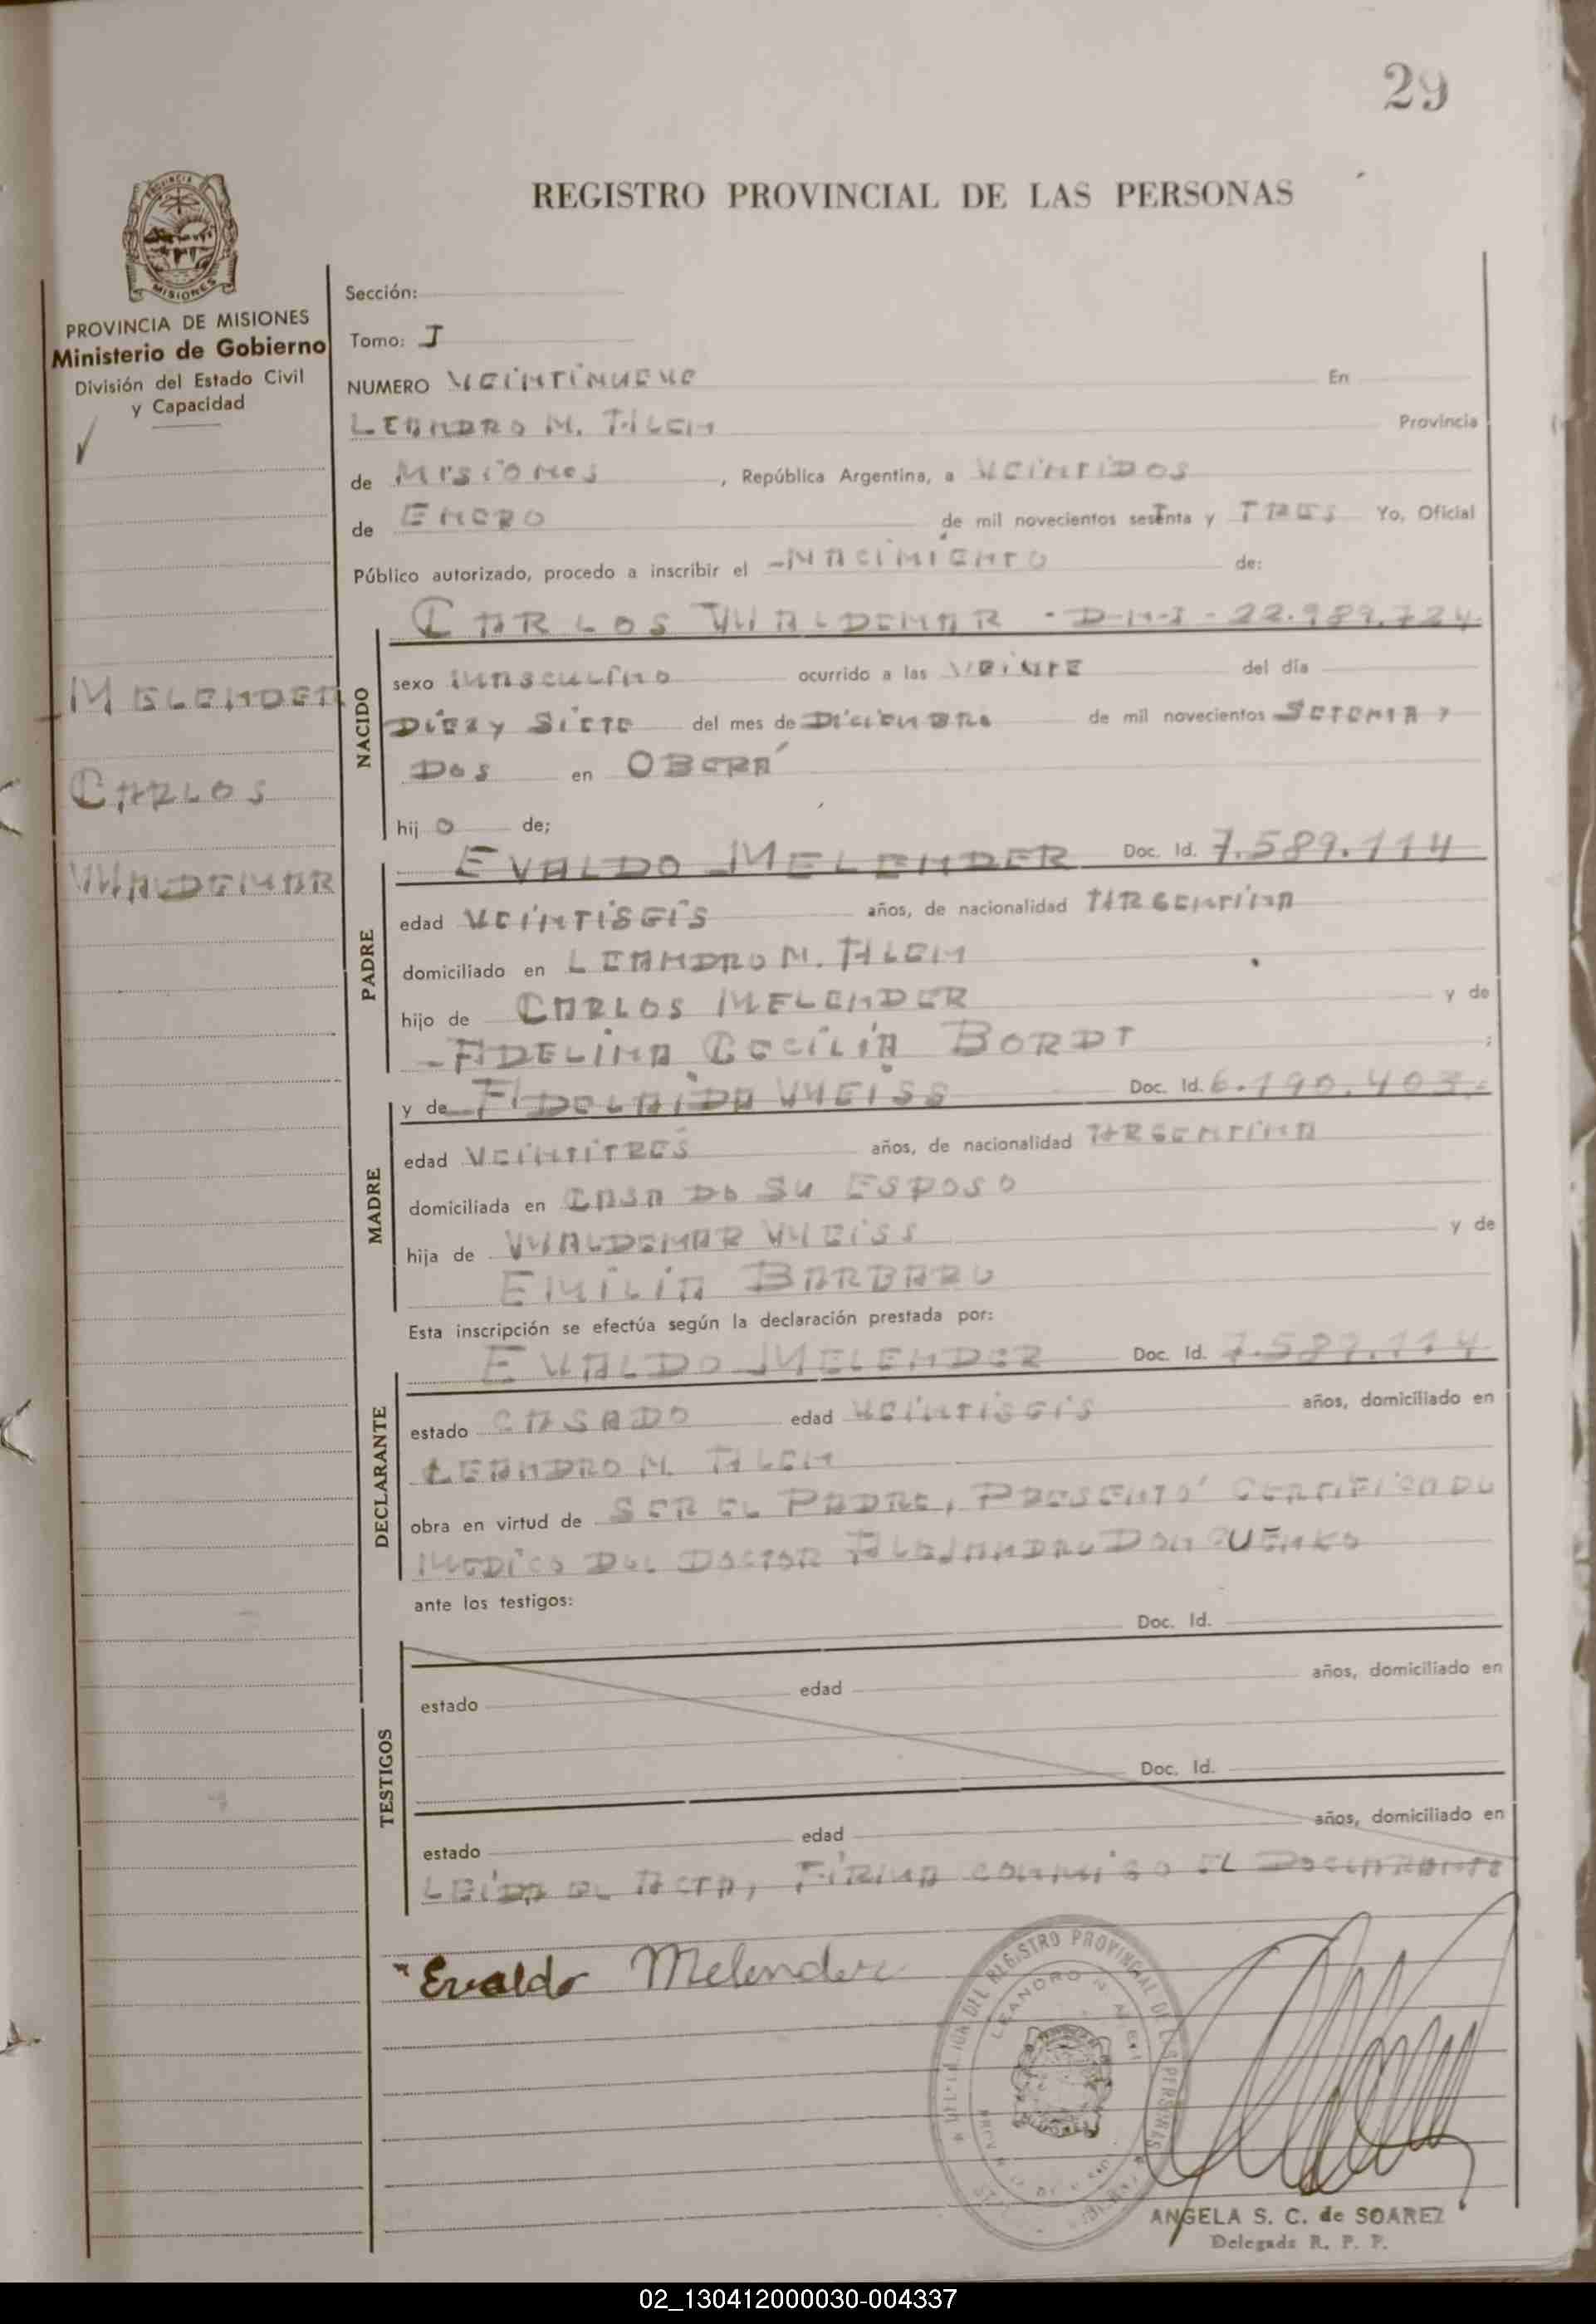 29
REGISTRO PROVINCIAL DE LAS PERSONAS
PROVINCIA DE MISIONES
Ministerio de Gobierno
División del Estado Civil
y Capacidad
MELENDER
CARLOS
WALDEMAR
Sección:
Tomo: I
NUMERO VEINTINUEVE En
LEANDRO N. ALEM Provincia
de MISIONES, República Argentina, a VEINTIDOS
de ENERO de mil novecientos setenta y TRES Yo, Oficial
Público autorizado, procedo a inscribir el -NACIMIENTO de:
CARLOS WALDEMAR - D-N-I - 22.989.724
NACIDO
sexo MASCULINO ocurrido a las VEINTE del día
DIEZ Y SIETE del mes de DICIEMBRE de mil novecientos SETENTA Y
DOS en OBERÁ
hijo de;
PADRE
EVALDO MELENDER Doc. Id. 7.589.114
edad VEINTISEIS años, de nacionalidad ARGENTINA
domiciliado en LEANDRO N. ALEM
hijo de CARLOS MELENDER y de
-ADELINA CECILIA BORDT ;
MADRE
y de ADELAIDA WEISS Doc. Id. 6.190.403.-
edad VEINTITRES años, de nacionalidad ARGENTINA
domiciliada en CASA DE SU ESPOSO
hija de WALDEMAR WEISS y de
EMILIA BARBARO
Esta inscripción se efectúa según la declaración prestada por:
DECLARANTE
EVALDO MELENDER Doc. Id. 7.589.114
estado CASADO edad VEINTISEIS años, domiciliado en
LEANDRO N. ALEM
obra en virtud de SER EL PADRE, PRESENTÓ CERTIFICADO
MEDICO DEL DOCTOR ALEJANDRO
ante los testigos:
TESTIGOS
Doc. Id.
estado edad años, domiciliado en
Doc. Id.
estado edad años, domiciliado en
LEIDA EL ACTA, FIRMA CONMIGO EL DECLARANTE
Evaldo Melender
DEL REGISTRO PROVINCIAL DE LAS PERSONAS
LEANDRO N. ALEM
ANGELA S. C. de SOAREZ
Delegada R. P. P.
02_130412000030-004337